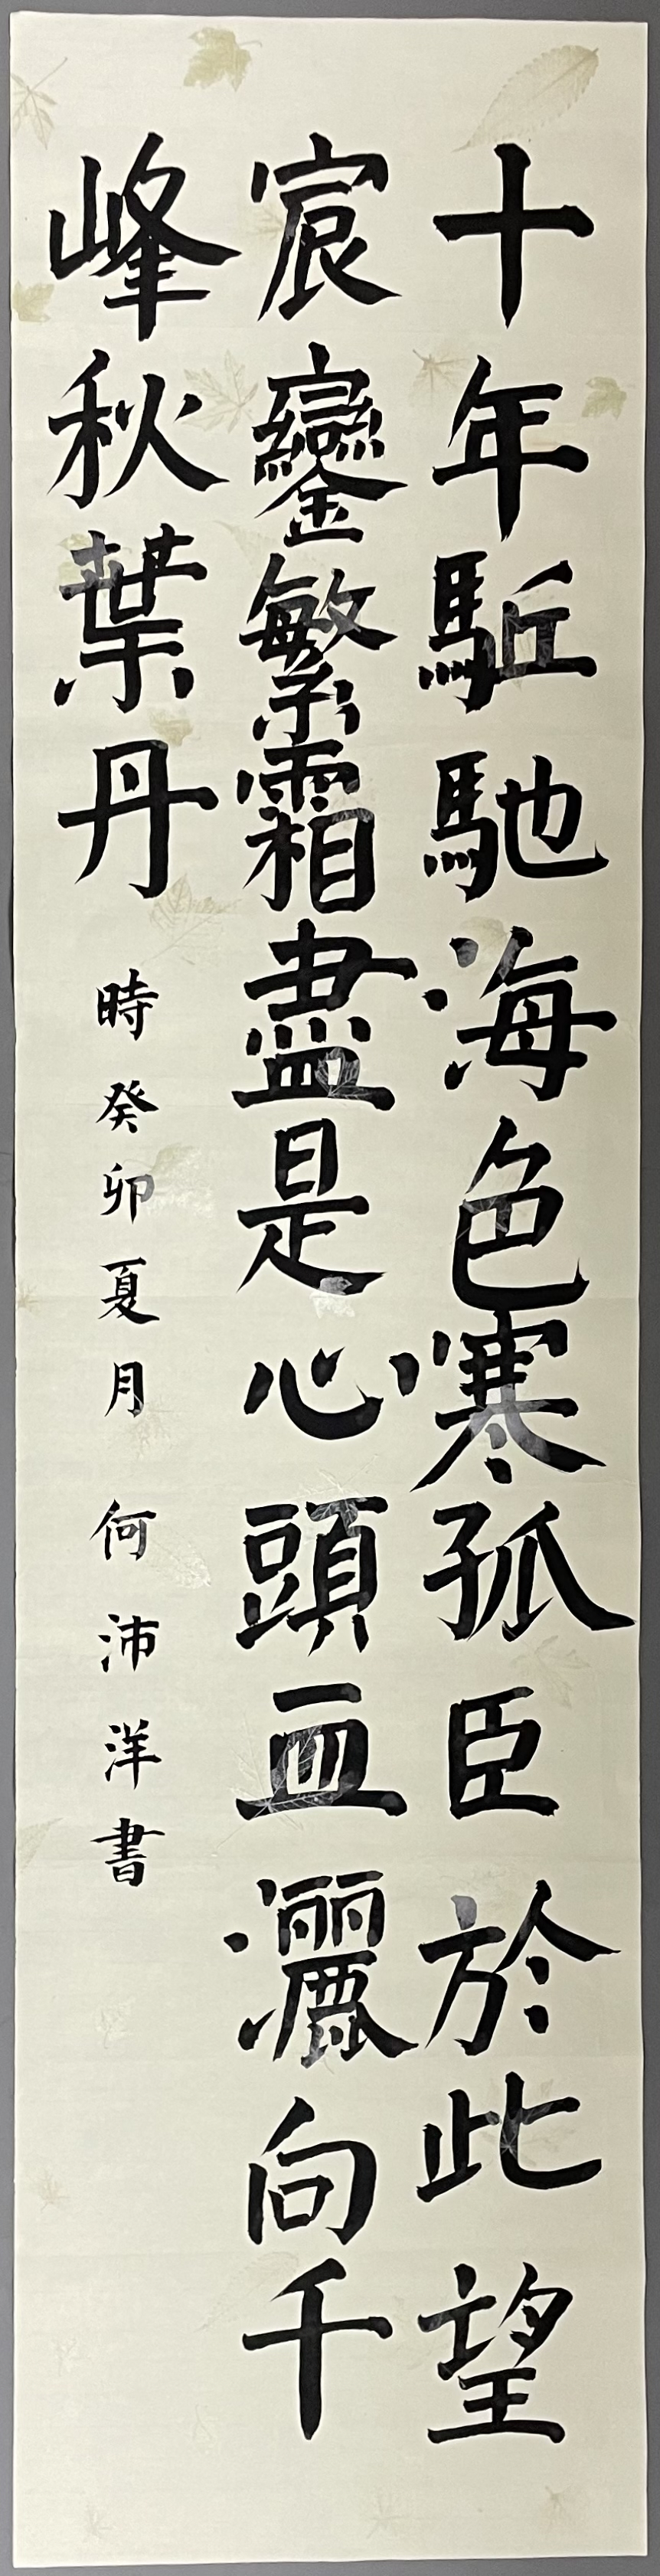 十年駈馳海色寒孤臣於此望
宸鑾繁霜盡是心頭血灑向千
峰秋葉丹 時癸卯夏月 何沛洋書